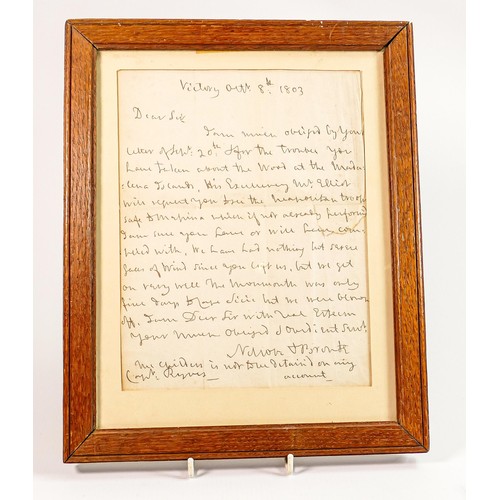 Victory Octr. 8th 1803
Dear Sir
I am much obliged by your
letter of Sepr. 20th & for the trouble you
have taken about the Wood at the Mada-
lena Islands, His Excellency Mr. Elliot
will request you to see the Neapolitan troops
safe to Messina which if not already performed
I am sure you have or will be com-
-plied with, We have had nothing but severe
Gales of Wind since you left us, but we get
on very well the Monmouth was only
five days to Cape but we were blown
off, I am Dear Sir with real Esteem
your much obliged & obedient Servt.
Nelson & Bronte
the Childers is not to be detained on my
account
Capt. Ryves